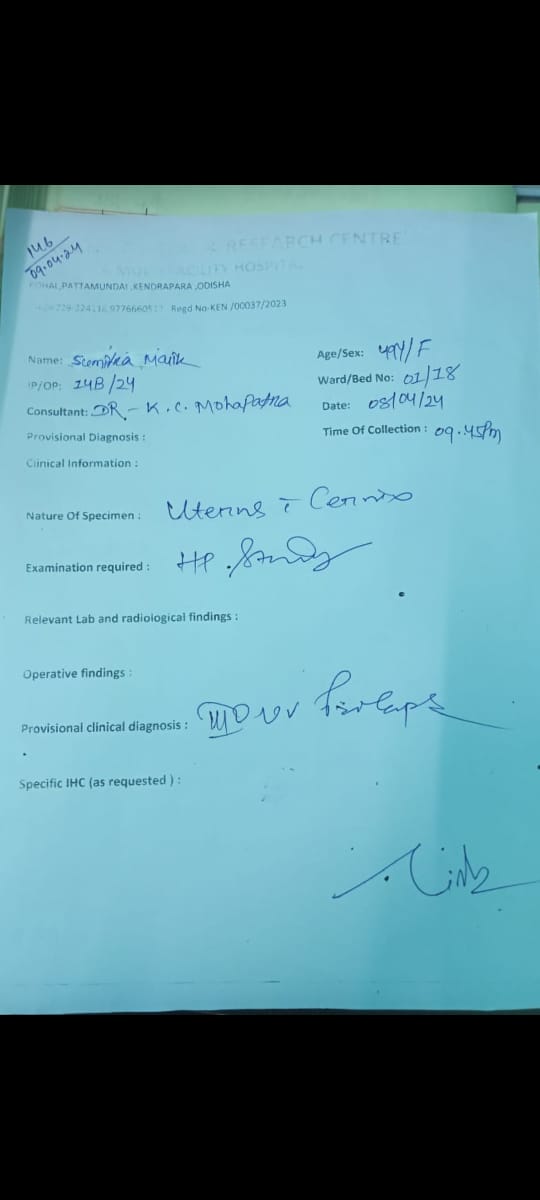 146
09.04.24
RESEARCH CENTRE
FACILITY HOSPITAL
PATTAMUNDAI ,KENDRAPARA ,ODISHA
9776660517 Regd No-KEN /00037/2023
Name: Mallik Age/Sex: 49Y/F
IP/OP: 14B/24 Ward/Bed No: 01/18
Consultant: DR - K.C. Mohapatra Date: 08/04/24
Provisional Diagnosis : Time Of Collection : 09.45Pm
Clinical Information :
Nature Of Specimen : Uterus c̄ Cervix
Examination required : HP. Study
Relevant Lab and radiological findings :
Operative findings :
Provisional clinical diagnosis : III° UV Prolapse
Specific IHC (as requested ) :